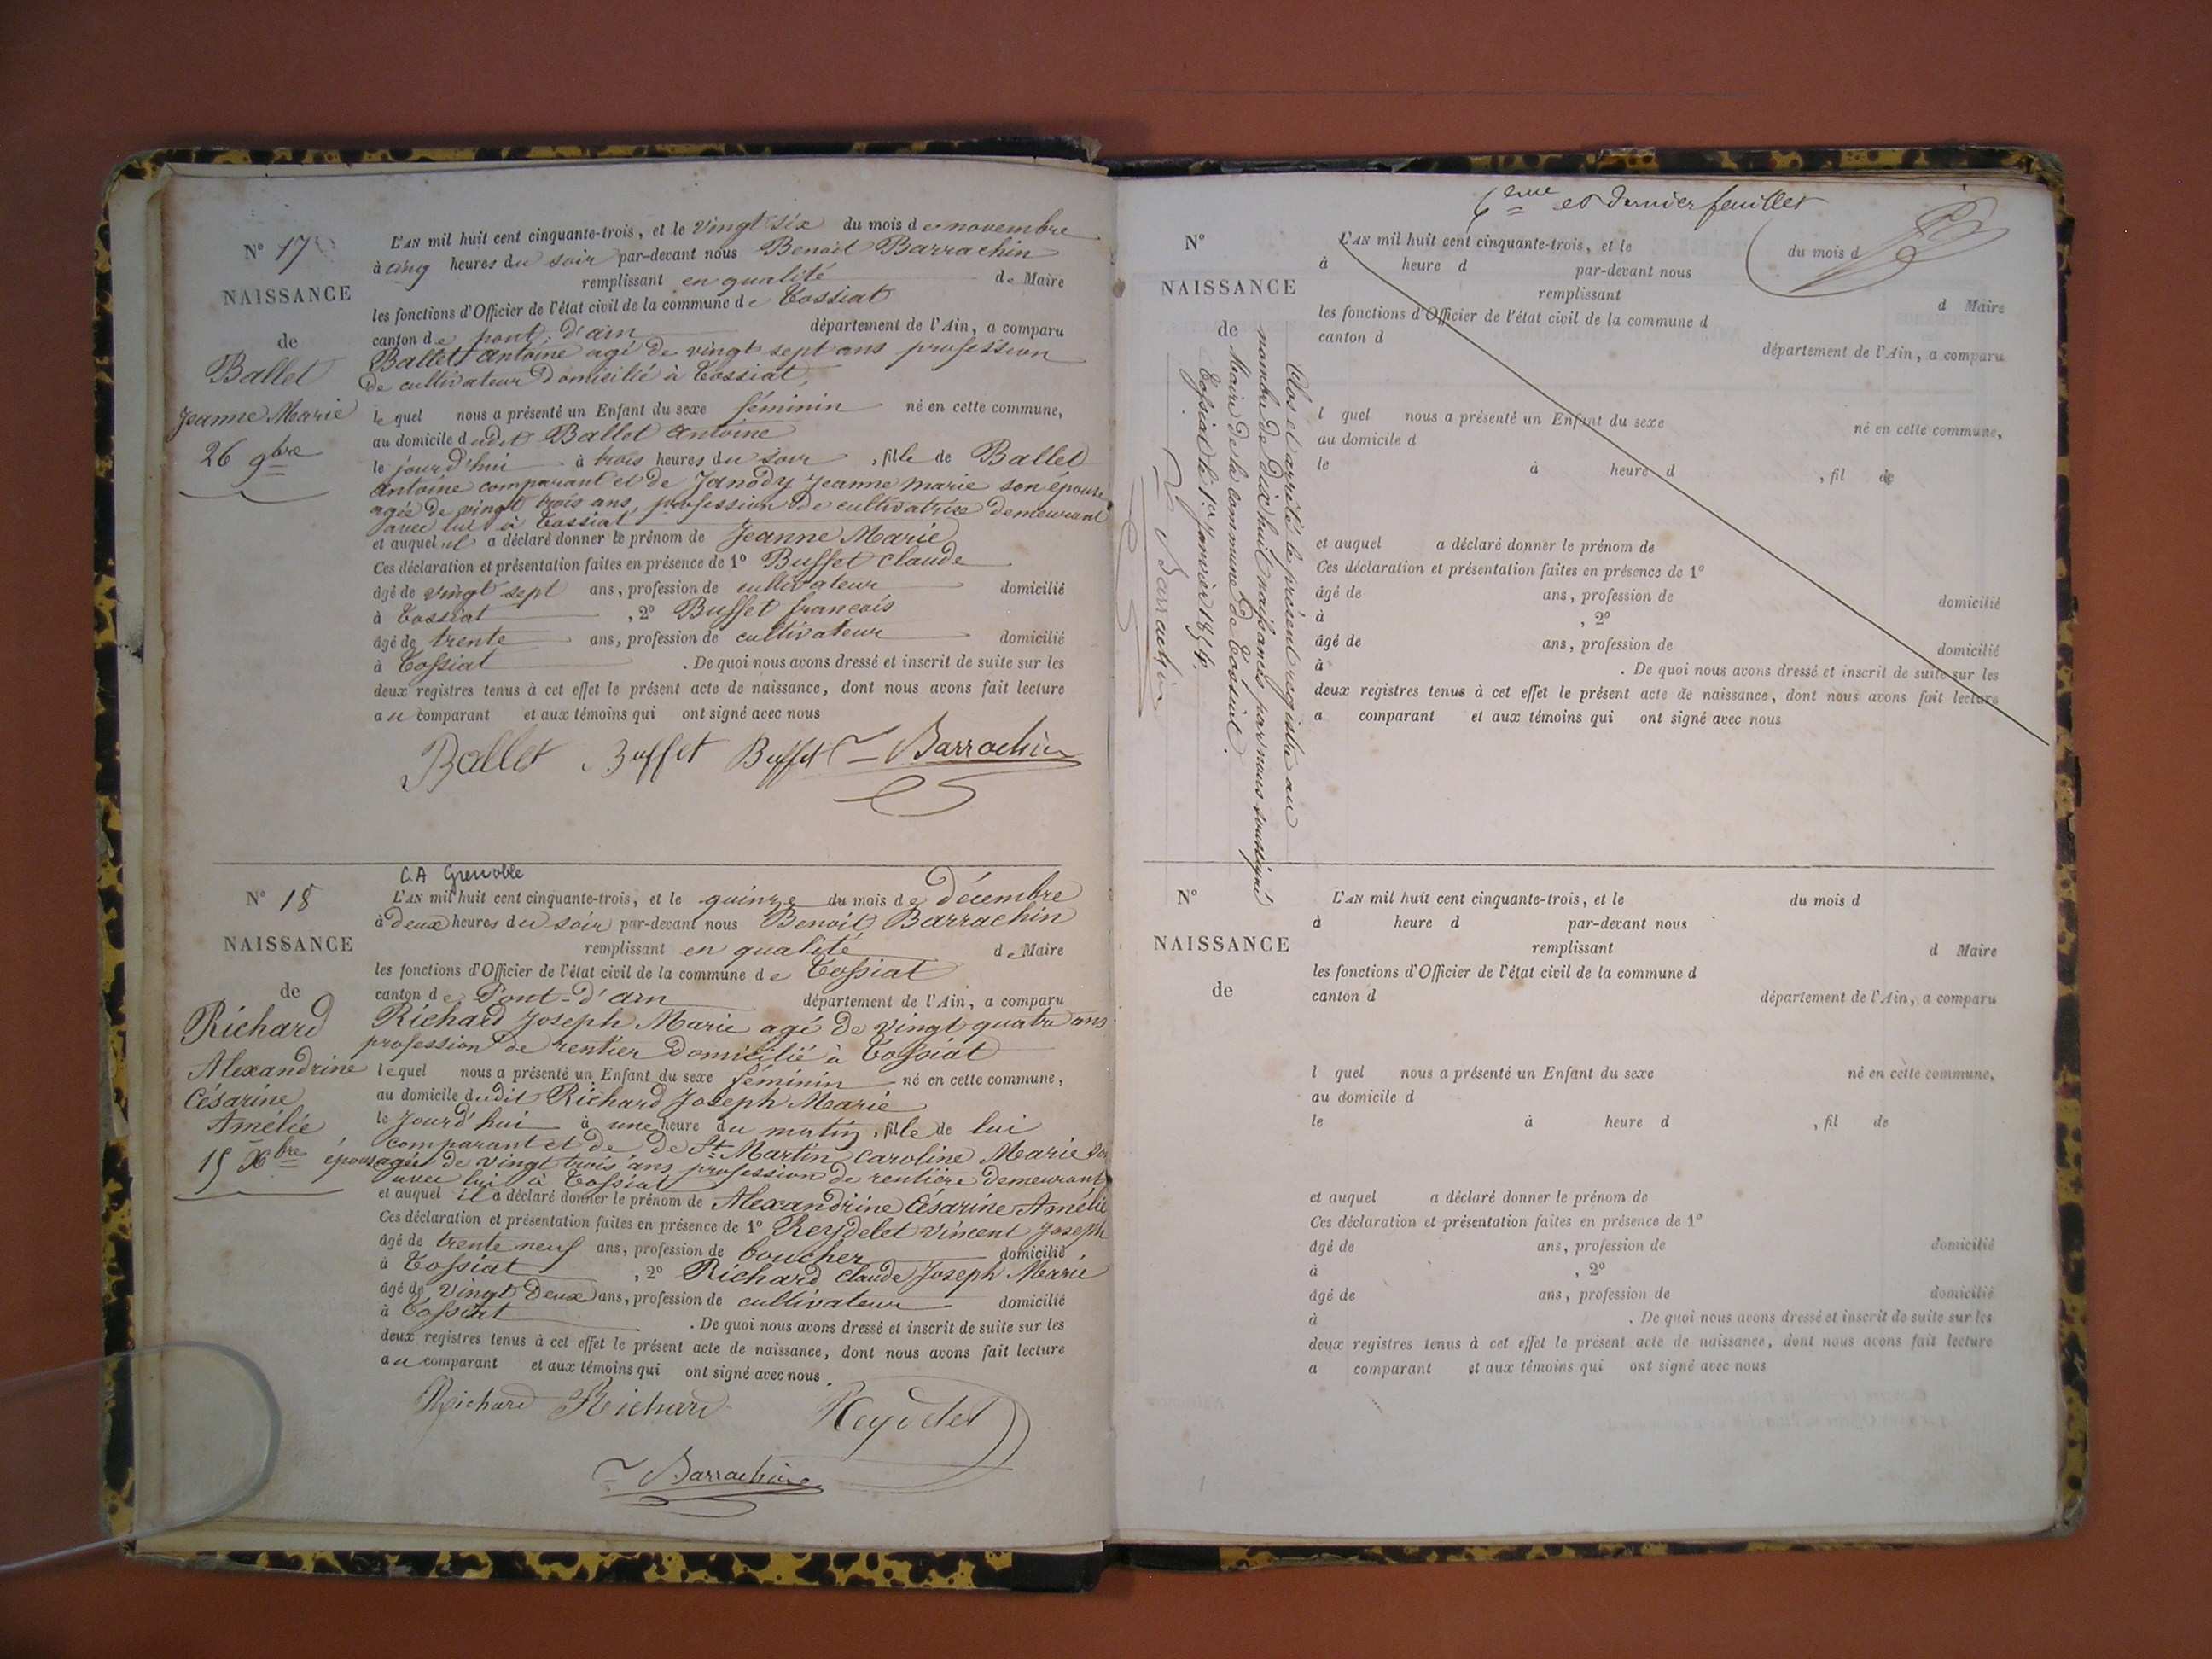 N° 17
NAISSANCE
de
Ballet
Jeanne Marie
26 9bre
L'AN mil huit cent cinquante-trois, et le vingt six du mois de novembre
à cinq heures du soir par-devant nous Benoit Barrachin
remplissant en qualité de Maire
les fonctions d'Officier de l'état civil de la commune de Tossiat
canton de pont, d'ain département de l'Ain, a comparu
Ballet antoine agé de vingt sept ans profession
de cultivateur domicilié à Tossiat,
le quel nous a présenté un Enfant du sexe féminin né en cette commune,
au domicile dudit Ballet antoine
le jourd'hui à trois heures du soir, fille de Ballet
antoine comparant et de Janody jeanne marie son épouse
agée de vingt trois ans, profession de cultivatrice demeurant
avec lui à Tossiat
et auquel il a déclaré donner le prénom de Jeanne Marie
Ces déclaration et présentation faites en présence de 1° Buffet Claude
âgé de vingt sept ans, profession de cultivateur domicilié
à Tossiat, 2° Buffet francois
âgé de trente ans, profession de cultivateur domicilié
à Tossiat. De quoi nous avons dressé et inscrit de suite sur les
deux registres tenus à cet effet le présent acte de naissance, dont nous avons fait lecture
au comparant et aux témoins qui ont signé avec nous
Ballet Buffet Buffet Barrachin
C.A Grenoble
N° 18
NAISSANCE
de
Richard
Alexandrine
Césarine
Amélie
15 Xbre
L'AN mil huit cent cinquante-trois, et le quinze du mois de décembre
à deux heures du soir par-devant nous Benoit Barrachin
remplissant en qualité de Maire
les fonctions d'Officier de l'état civil de la commune de Tossiat
canton de Pont-d'ain département de l'Ain, a comparu
Richard Joseph Marie agé de vingt quatre ans
profession de rentier domicilié à Tossiat
lequel nous a présenté un Enfant du sexe féminin né en cette commune,
au domicile dudit Richard Joseph Marie
le jourd'hui à une heure du matin, fille de lui
comparant et de de St Martin Caroline Marie son
épouse agée de vingt trois ans profession de rentière demeurant
avec lui à Tossiat
et auquel il a déclaré donner le prénom de Alexandrine Césarine Amélie
Ces déclaration et présentation faites en présence de 1° Reydelet Vincent Joseph
âgé de trente neuf ans, profession de boucher domicilié
à Tossiat, 2° Richard Claude Joseph Marie
âgé de vingt deux ans, profession de cultivateur domicilié
à Tossiat. De quoi nous avons dressé et inscrit de suite sur les
deux registres tenus à cet effet le présent acte de naissance, dont nous avons fait lecture
au comparant et aux témoins qui ont signé avec nous.
Richard Richard Reydelet
Barrachin
6eme et dernier feuillet
N°
NAISSANCE
de
Clos et arrêté le présent registre au
nombre de Dix huit naissances par nous soussigné
Maire de la Commune de Tossiat.
Tossiat le 1er Janvier 1854.
Barrachin
L'AN mil huit cent cinquante-trois, et le du mois d
à heure d par-devant nous
remplissant d Maire
les fonctions d'Officier de l'état civil de la commune d
canton d département de l'Ain, a comparu
l quel nous a présenté un Enfant du sexe né en cette commune,
au domicile d
le à heure d , fil de
et auquel a déclaré donner le prénom de
Ces déclaration et présentation faites en présence de 1°
âgé de ans, profession de domicilié
à , 2°
âgé de ans, profession de domicilié
à . De quoi nous avons dressé et inscrit de suite sur les
deux registres tenus à cet effet le présent acte de naissance, dont nous avons fait lecture
a comparant et aux témoins qui ont signé avec nous
N°
NAISSANCE
de
L'AN mil huit cent cinquante-trois, et le du mois d
à heure d par-devant nous
remplissant d Maire
les fonctions d'Officier de l'état civil de la commune d
canton d département de l'Ain, a comparu
l quel nous a présenté un Enfant du sexe né en cette commune,
au domicile d
le à heure d , fil de
et auquel a déclaré donner le prénom de
Ces déclaration et présentation faites en présence de 1°
âgé de ans, profession de domicilié
à , 2°
âgé de ans, profession de domicilié
à . De quoi nous avons dressé et inscrit de suite sur les
deux registres tenus à cet effet le présent acte de naissance, dont nous avons fait lecture
a comparant et aux témoins qui ont signé avec nous